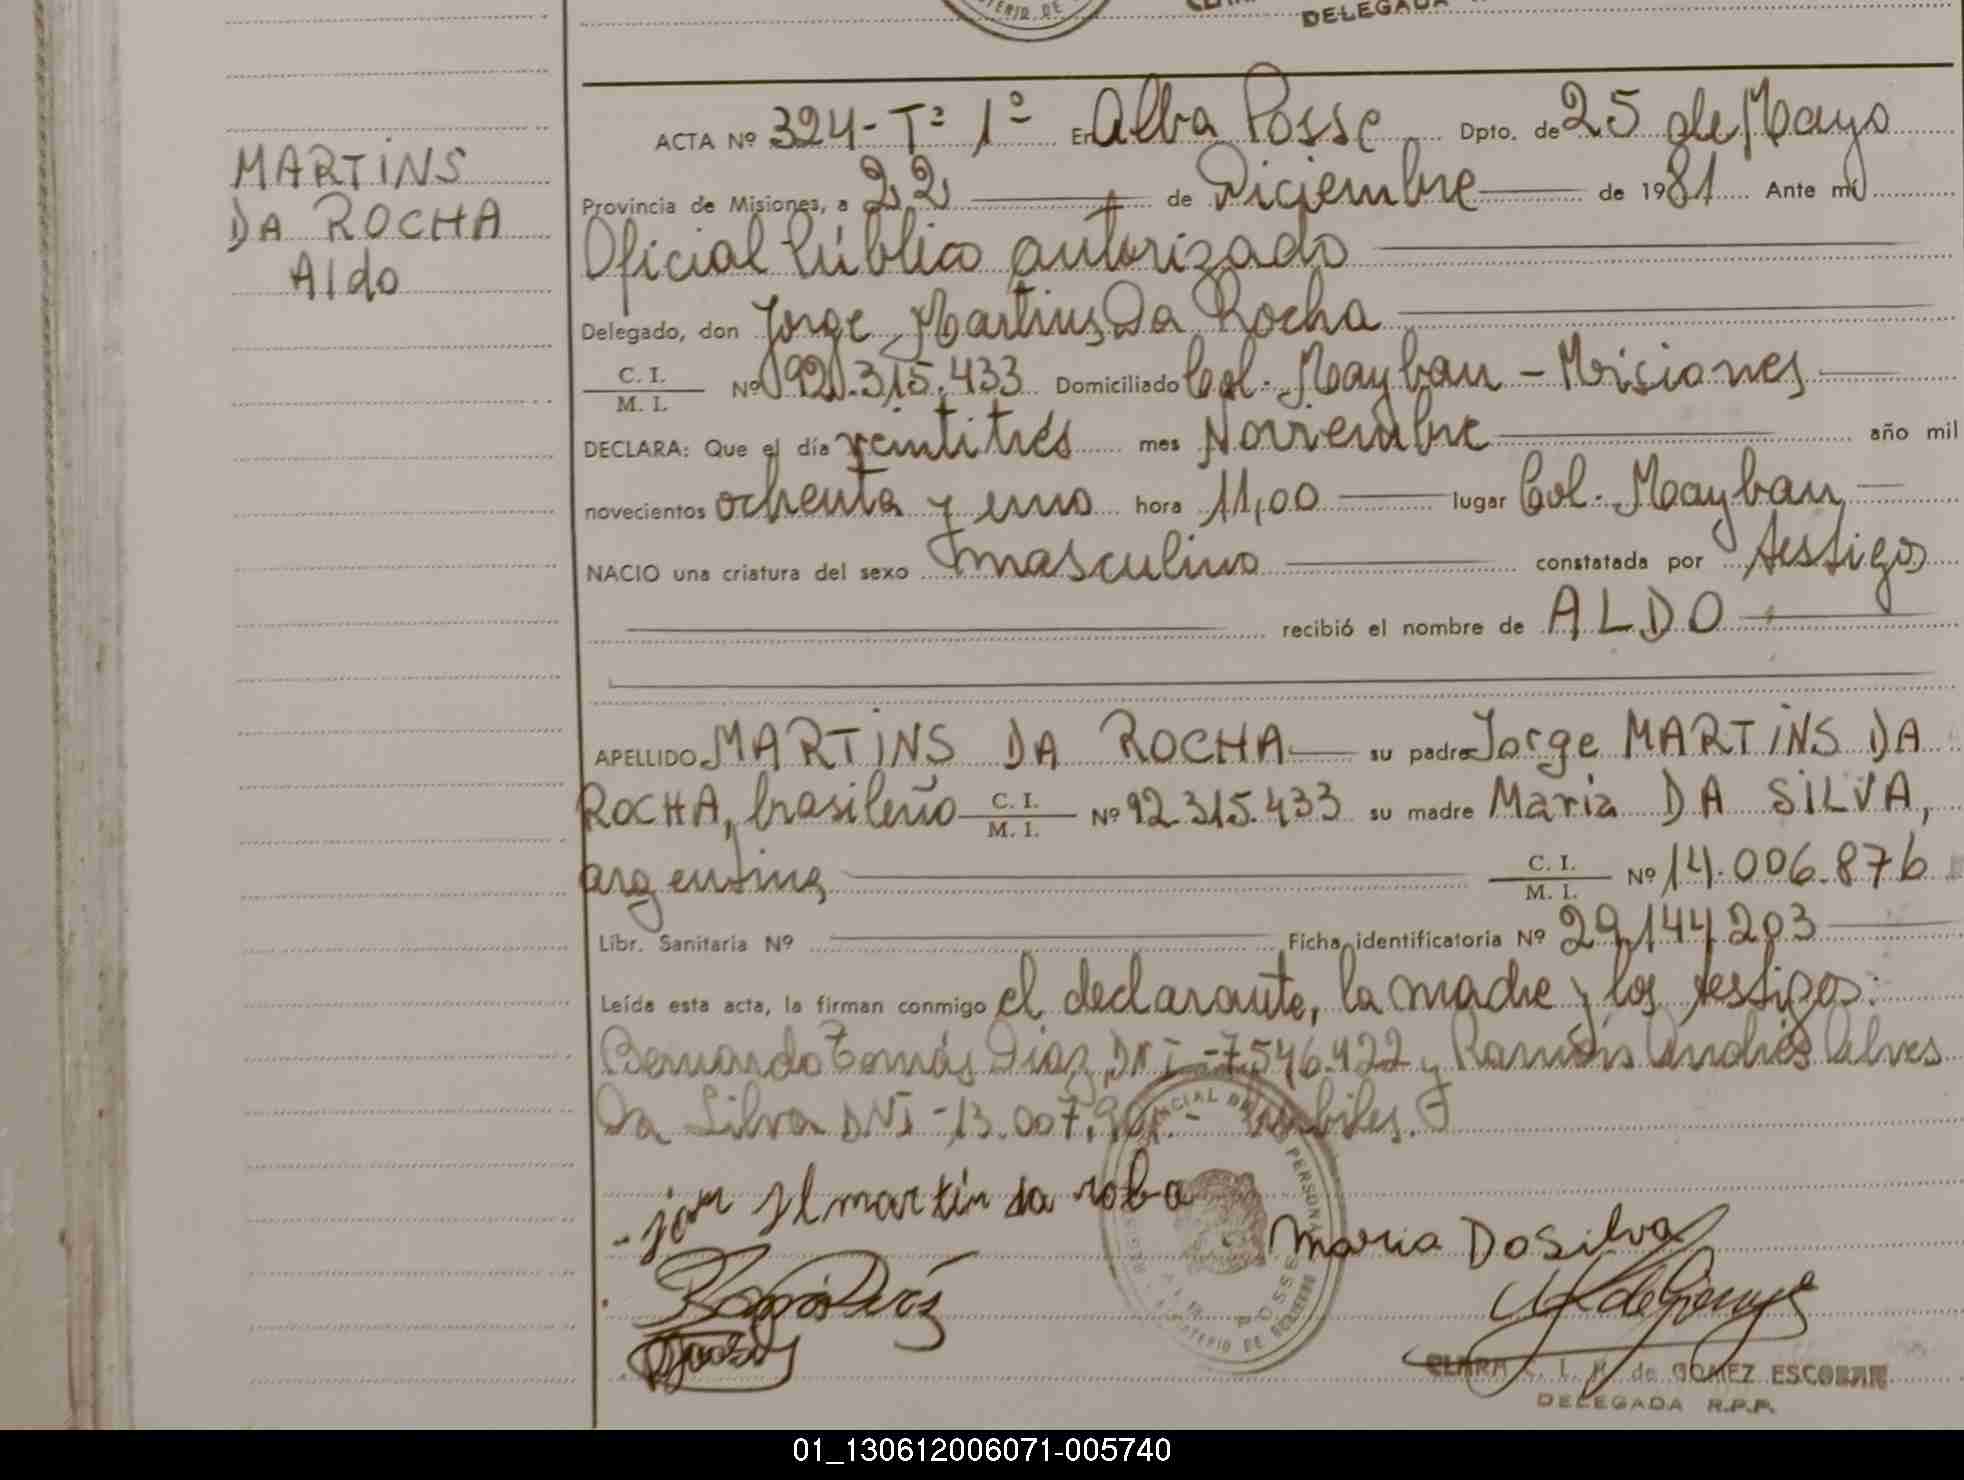 MINISTERIO DE
DELEGADA
ACTA Nº 324- Tº 1º En Alba Posse Dpto. de 25 de Mayo
MARTiNS
DA ROCHA
Aldo
Provincia de Misiones, a 22 de Diciembre de 1981 Ante mí
Oficial Público autorizado
Delegado, don Jorge Martins Da Rocha
C. I.
M. I. Nº 92.315.433 Domiciliado Col. Mayban - Misiones
DECLARA: Que el día veintitrés mes Noviembre año mil
novecientos ochenta y uno hora 11,00 lugar Col. Mayban
NACIO una criatura del sexo masculino constatada por testigos
recibió el nombre de ALDO
APELLIDO MARTiNS DA ROCHA su padre Jorge MARTiNS DA
ROCHA, brasileño C. I. M. I. Nº 92.315.433 su madre Maria DA SiLVA,
argentina C. I. M. I. Nº 14.006.876
Libr. Sanitaria Nº Ficha identificatoria Nº 29.144.203
Leída esta acta, la firman conmigo el declarante, la madre y los testigos:
Bernardo Tomás Diaz DNI -7.546.422 y Ramón Andrés Alves
Da Silva DNI -13.007.901.- Hábiles.
martin da roba
maria Dasilva
CLARA C. L. H. de GOMEZ ESCOBAR
DELEGADA R.P.P.
01_130612006071-005740